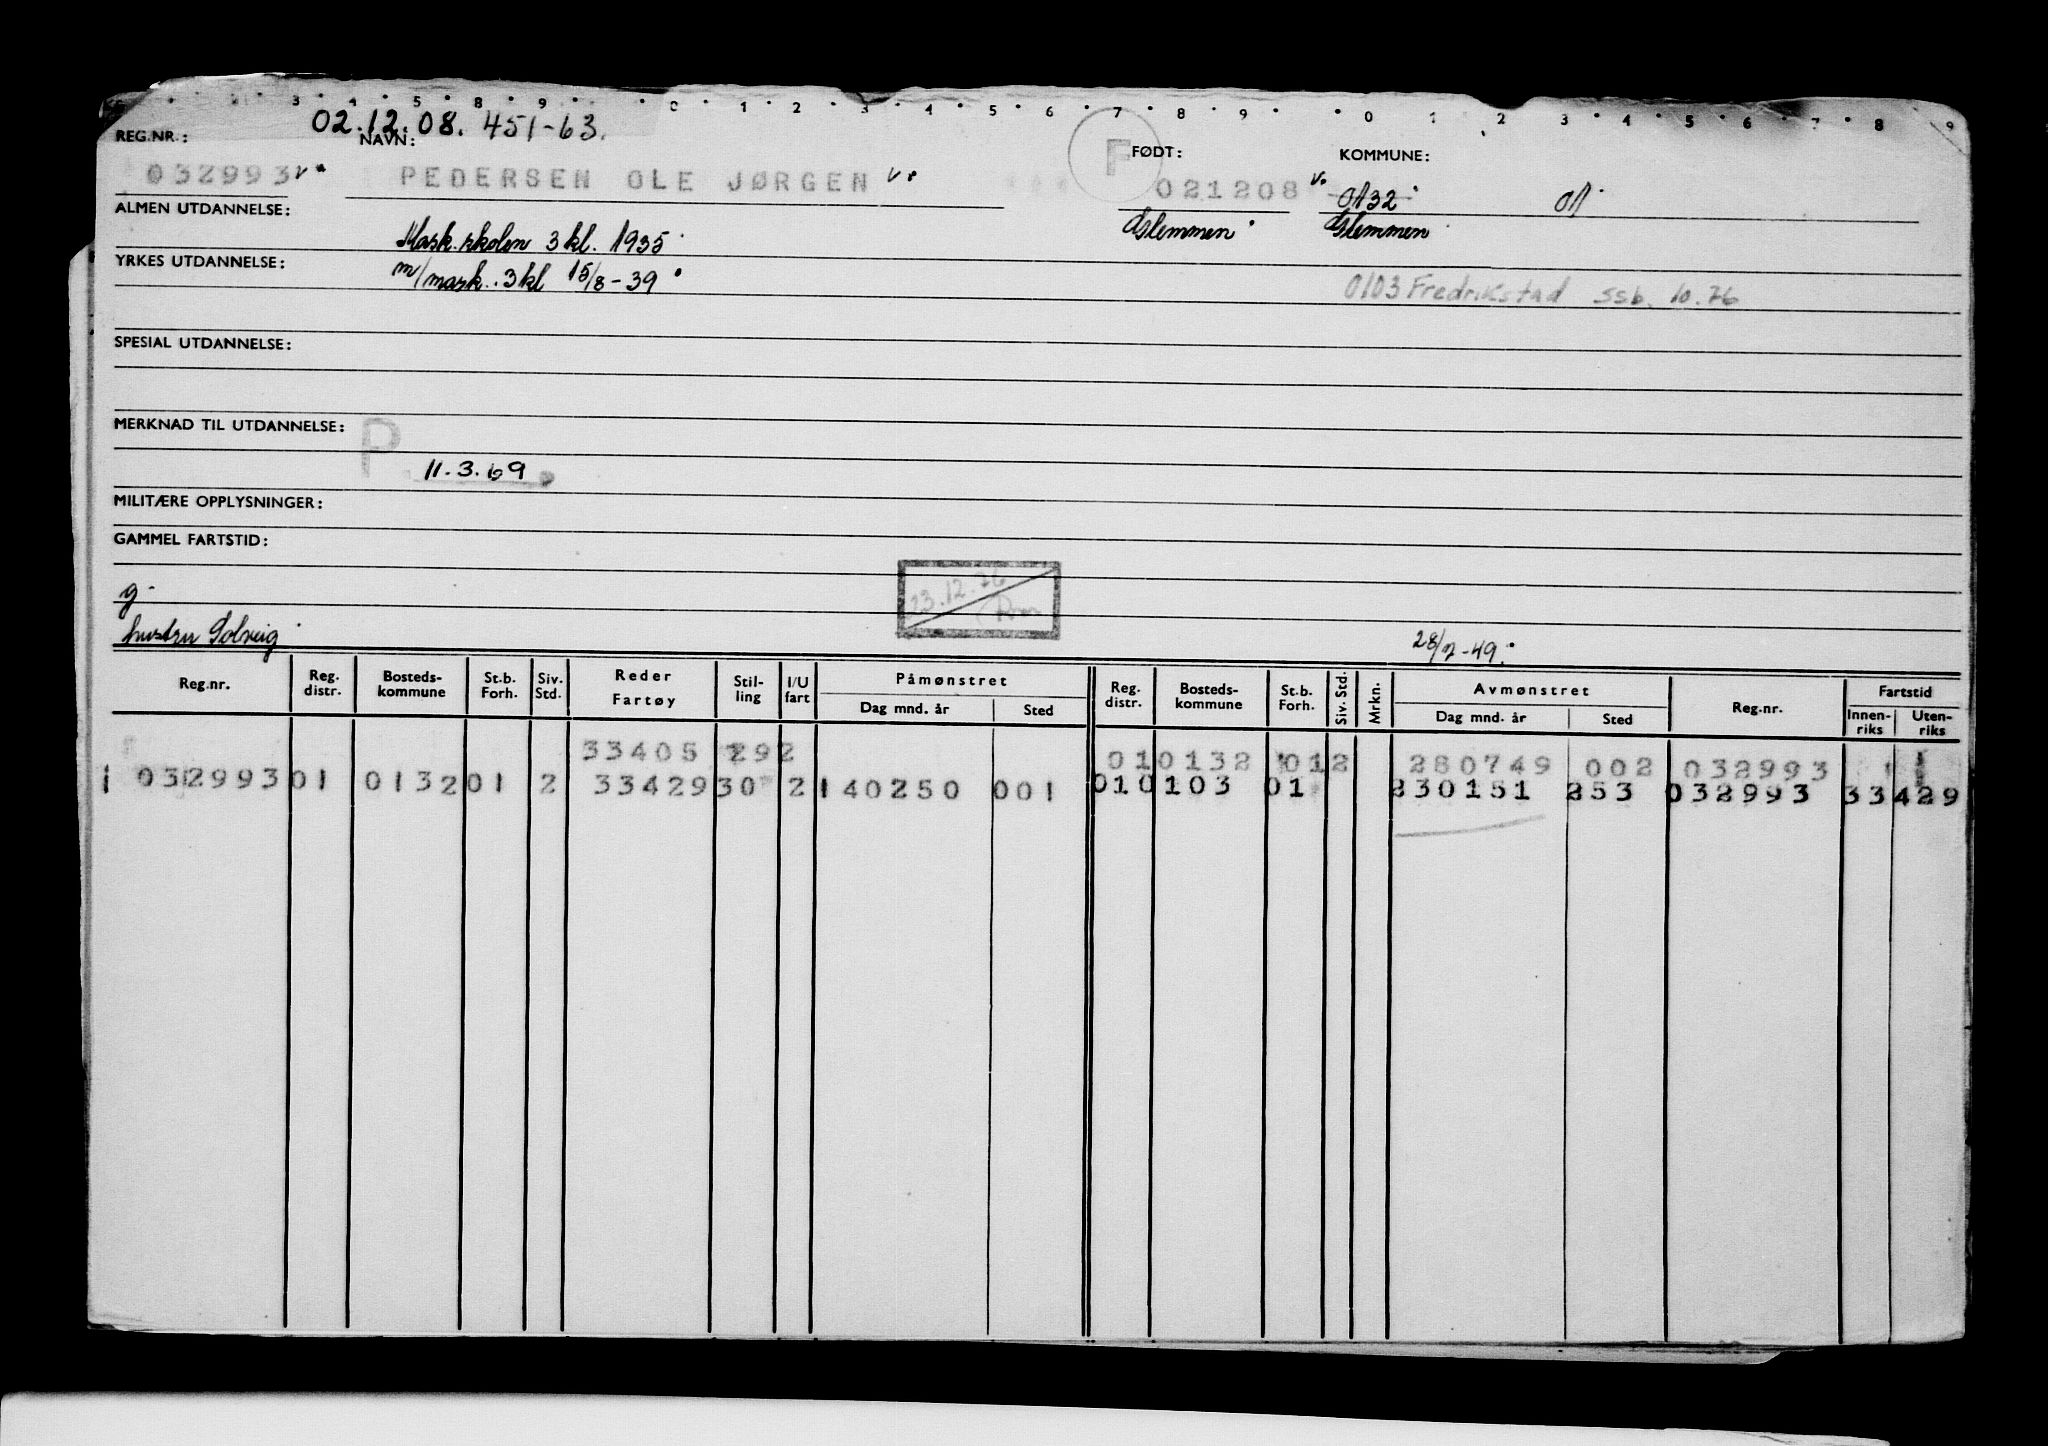 3 4 5 8 9 0 1 2 3 4 5 6 7 8 9 0 1 2 3 4 5 6 7 8 9
02.12.08. 451-63.
REG.NR.: NAVN: FØDT: KOMMUNE:
F
032993 PEDERSEN OLE JØRGEN 021208 0132 01
ALMEN UTDANNELSE: Glemmen Glemmen
Mask.skolen 3 kl. 1935
YRKES UTDANNELSE: m/mask. 3 kl 15/8-39
0103 Fredrikstad ssb. 10.76
SPESIAL UTDANNELSE:
MERKNAD TIL UTDANNELSE: P
11.3.69
MILITÆRE OPPLYSNINGER:
GAMMEL FARTSTID:
23.12.76
g.
hustru Solveig
28/7-49
Reg.nr. Reg. distr. Bosteds-kommune St.b. Forh. Siv. Std. Reder Fartøy Stil-ling I/U fart Påmønstret Dag mnd. år Sted Reg. distr. Bosteds-kommune St.b. Forh. Siv. Std. Mrkn. Avmønstret Dag mnd. år Sted Reg.nr. Fartstid Innen-riks Uten-riks
33405 292 010132 012 280749 002 032993
1 032993 01 0132 01 2 33429 30 2 140250 001 010103 01 230151 253 032993 33429